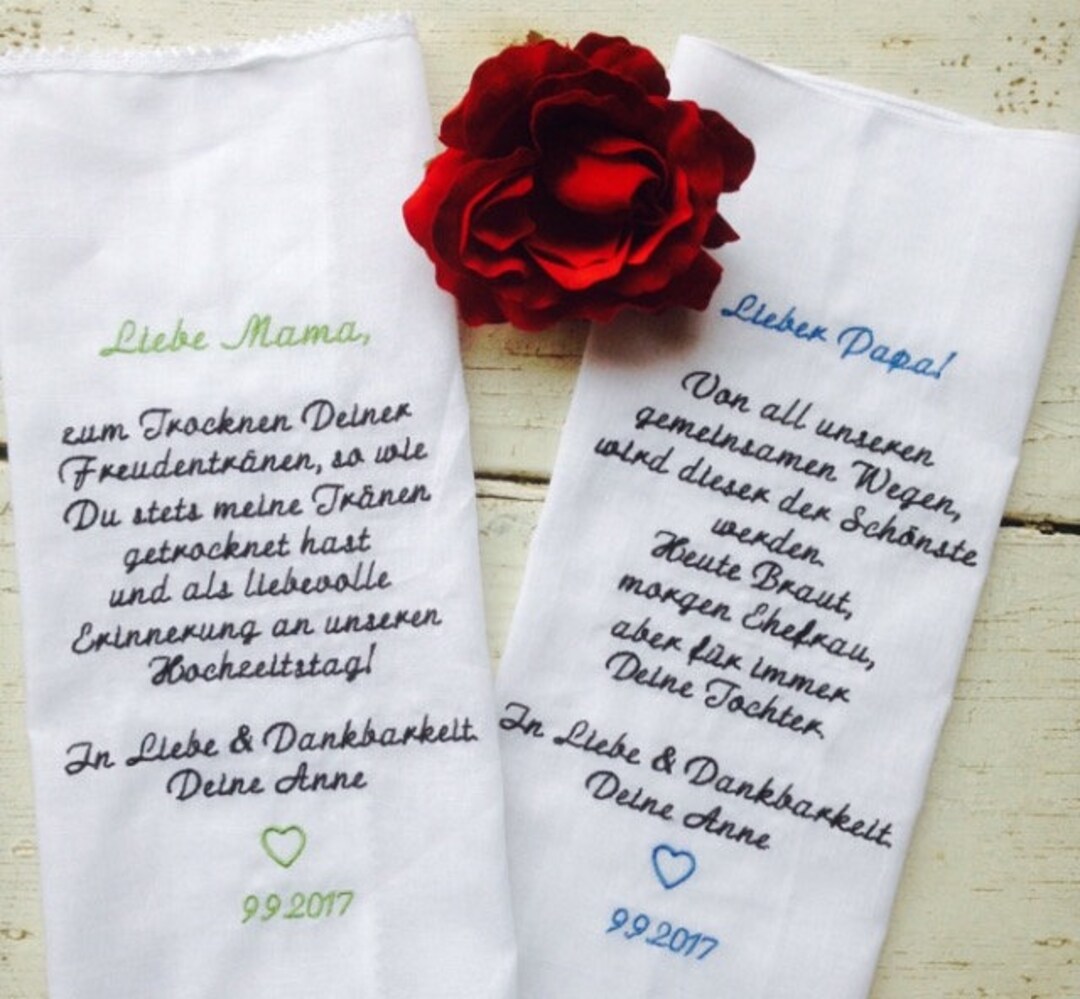 Liebe Mama,
zum Trocknen Deiner
Freudentränen, so wie
Du stets meine Tränen
getrocknet hast
und als liebevolle
Erinnerung an unseren
Hochzeitstag!
In Liebe & Dankbarkeit.
Deine Anne
9.9.2017
Lieber Papa!
Von all unseren
gemeinsamen Wegen,
wird dieser der Schönste
werden.
Heute Braut,
morgen Ehefrau,
aber für immer
Deine Tochter.
In Liebe & Dankbarkeit.
Deine Anne
9.9.2017